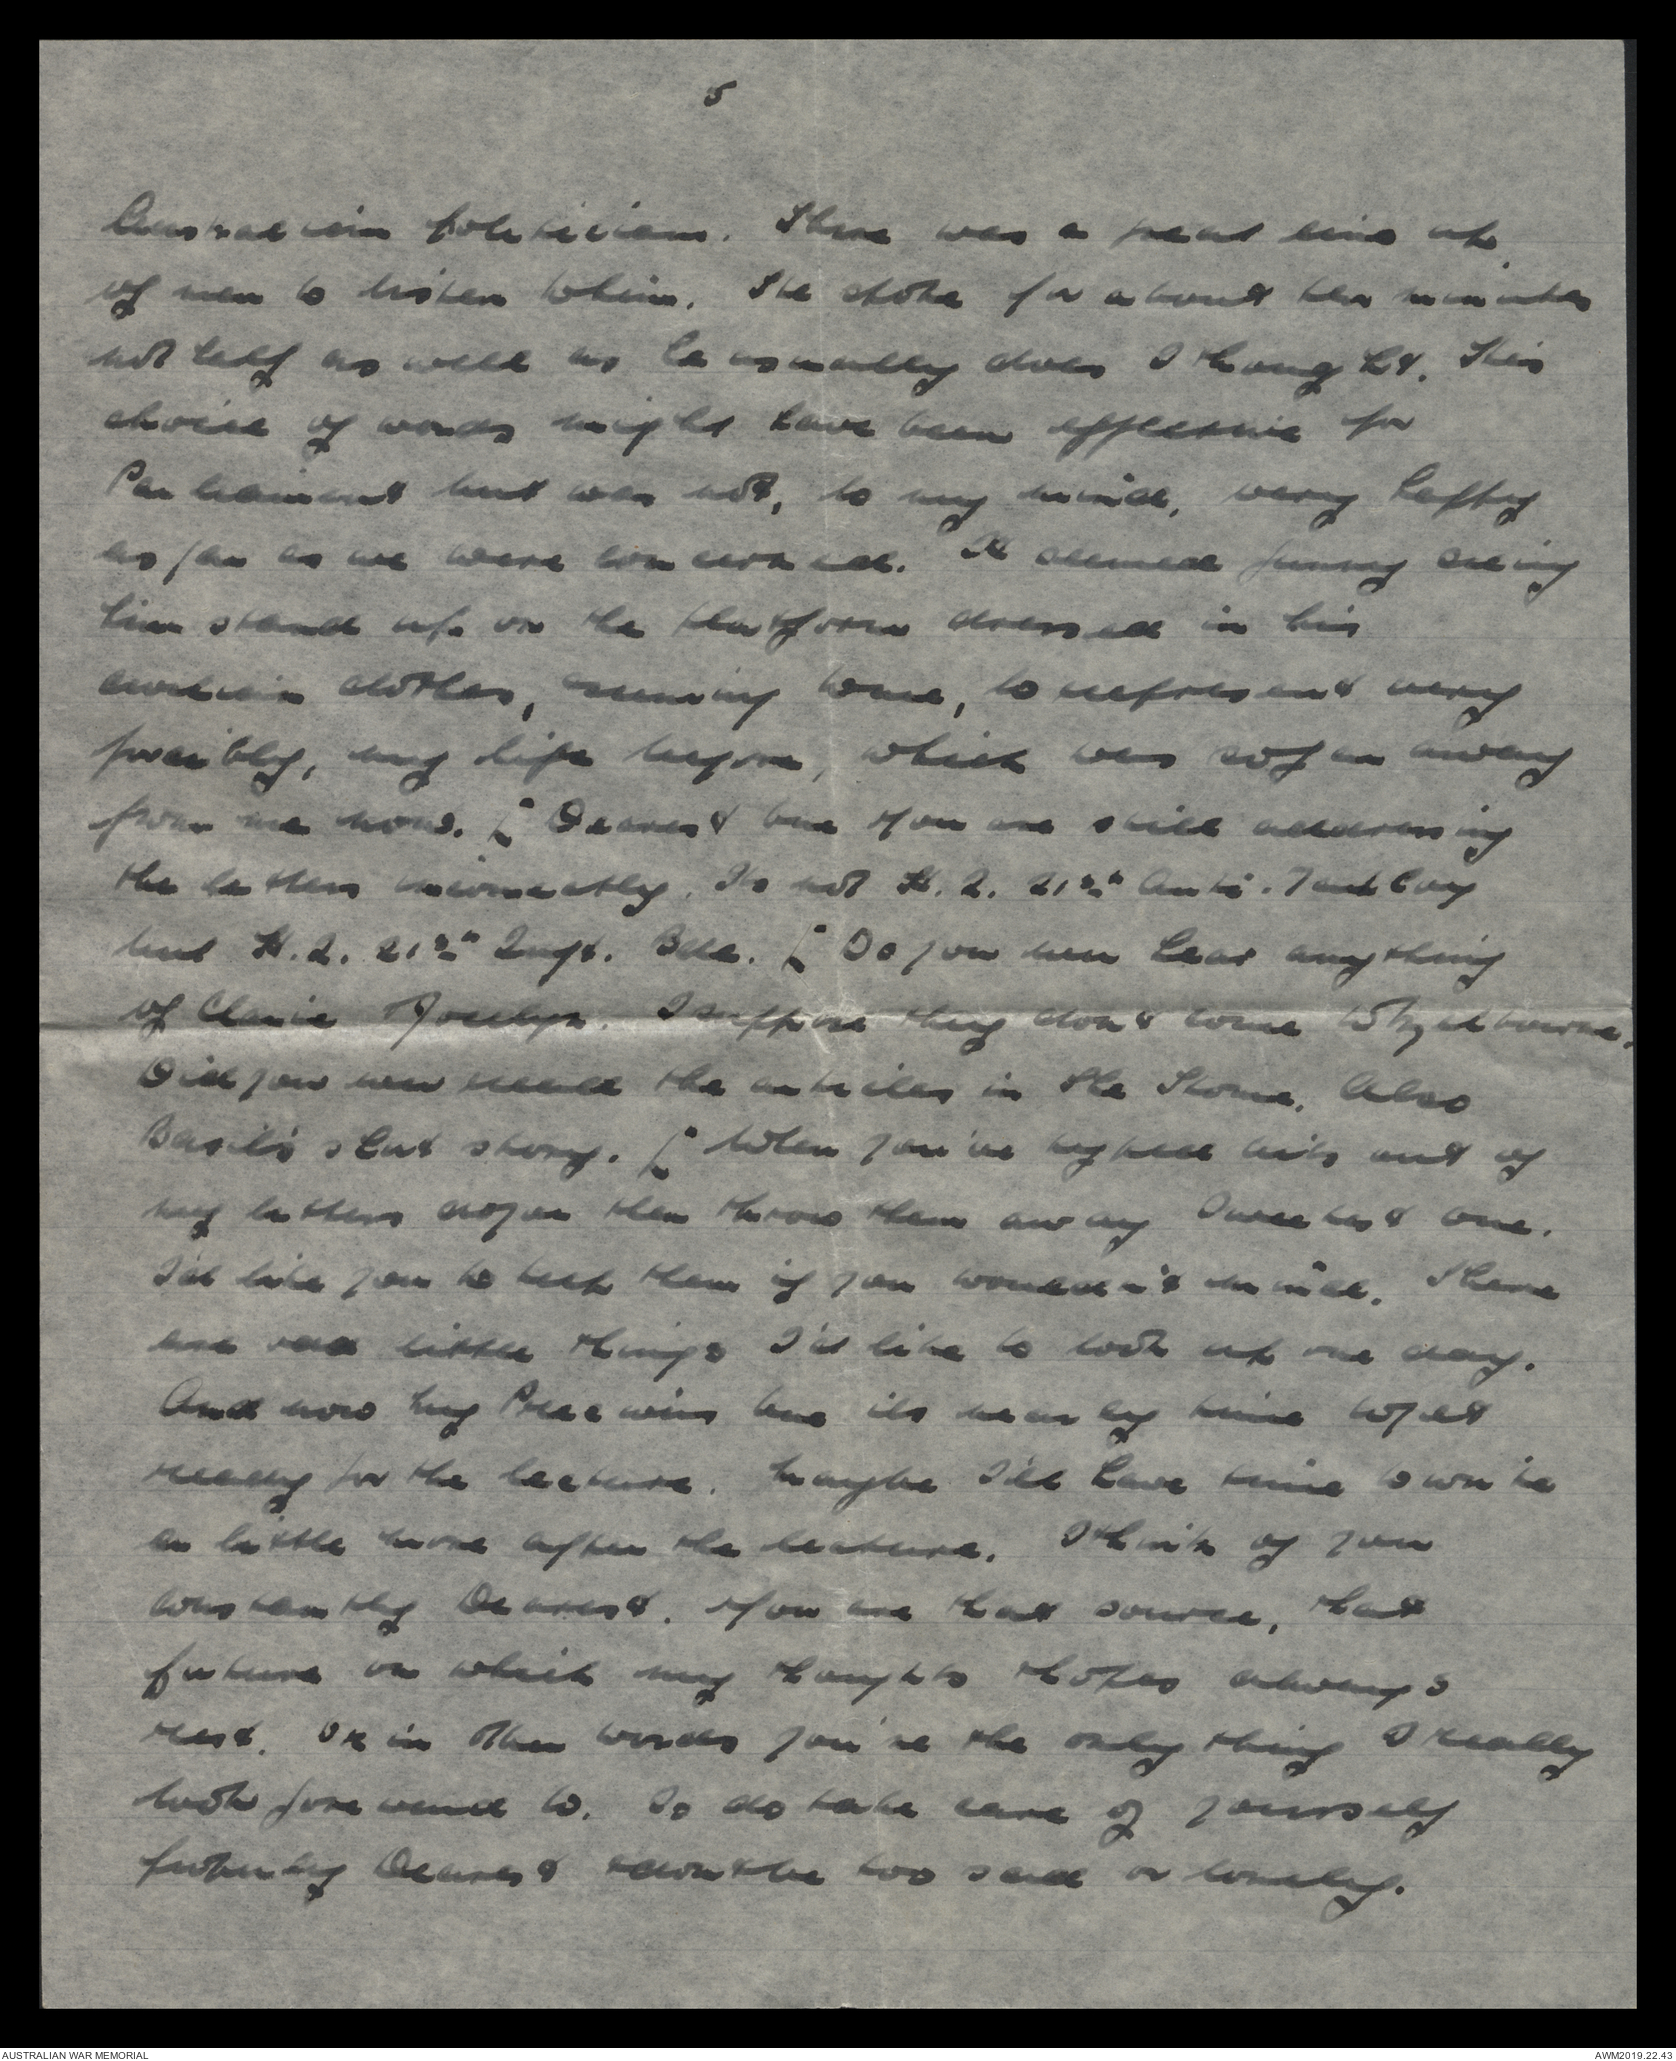 5
Australian politicians. There was a great line up
of men to listen to him. He spoke for about ten minutes
not half as well as he usually does I thought. His
choice of words might have been effective for
Parliament but was not, to my mind, very hefty
as far as we were concerned. It seemed funny seeing
him stand up on the platform dressed in his
civilian clothes, seeming to me, to represent very
forcibly, my life before, which was so far away
from me now. [ Dearest one you are still addressing
the letters incorrectly. Its not H.Q. 21st Anti. Tank Coy
but H.Q. 21st Inft. Bde. [ Do you ever hear anything
of Clarie Joselyn. I suppose they don't come to Melbourne.
Did you ever read the articles in the Home. Also
Basil's short story. [ When you've typed bits out of
my letters do you then throw them away Sweetest one.
I'd like you to keep them if you wouldn't mind. There
are odd little things I'd like to look up one day.
And now my Precious one its nearly time to get
ready for the lecture. Maybe I'll have time to write
a little more after the lecture. I think of you
constantly Dearest. You are that source, that
future on which my thoughts & hopes always
rest. Or in other words you're the only thing I really
look foreward to. So do take care of yourself
properly Dearest & don't be too sad or lonely.
AUSTRALIAN WAR MEMORIAL
AWM2019.22.43